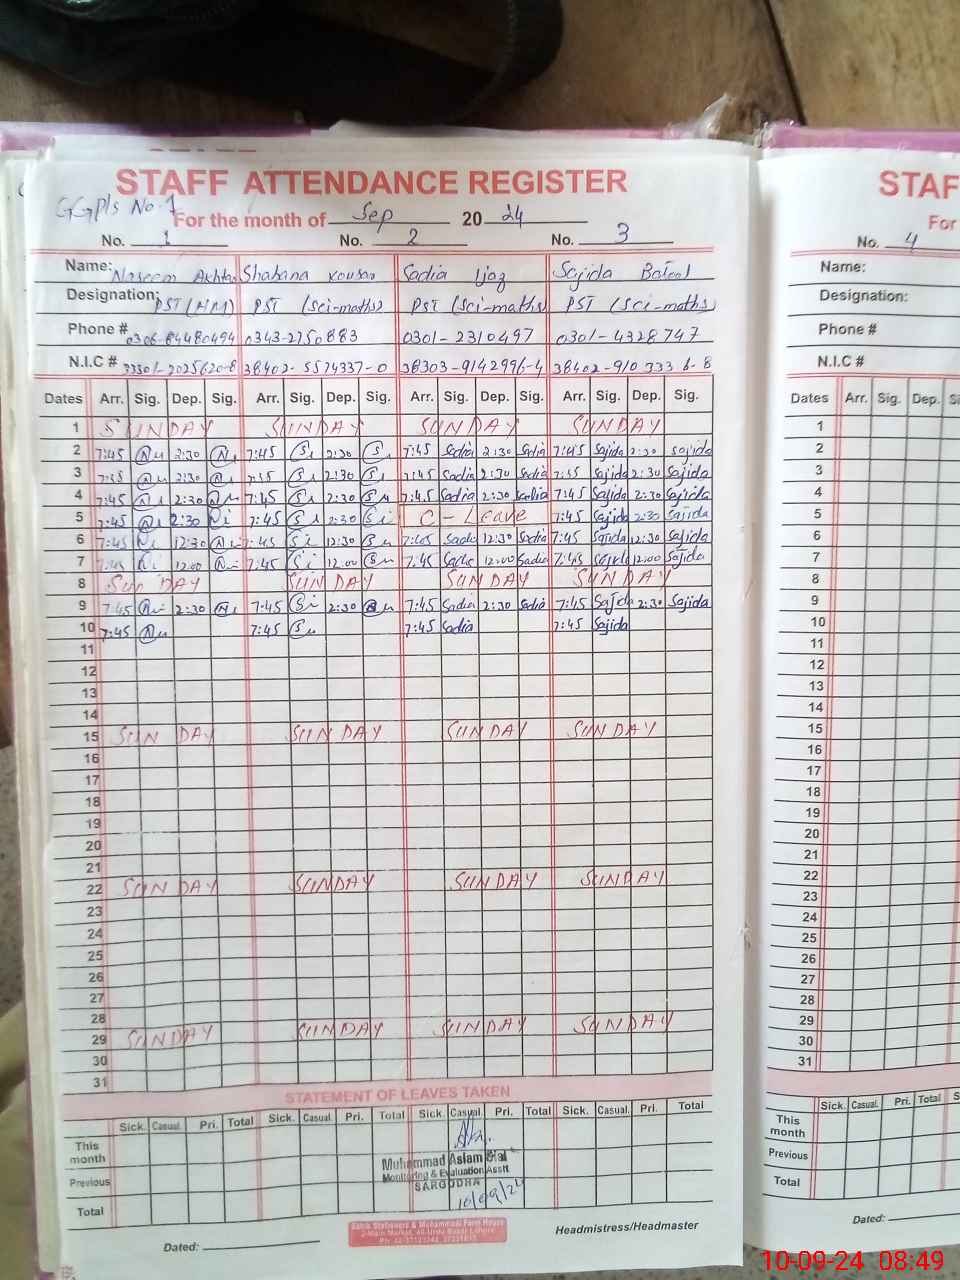 STAFF ATTENDANCE REGISTER
GGPls No.1
For the month of Sep 2024
No. 1 No. 2 No. 3
Name: Naseem Akhtar Shabana Kousar Sadia Ijaz Sajida Batool
Designation: PST (HM) PST (sci-maths) PST (sci-maths) PST (sci-maths)
Phone # 0306-84480494 0343-2750883 0301-2310497 0301-4328747
N.I.C # 38402-5574337-0 38303-9142996-4 38402-910333 6-8
Dates Arr. Sig. Dep. Sig. Arr. Sig. Dep. Sig. Arr. Sig. Dep. Sig. Arr. Sig. Dep. Sig.
1 SUNDAY SUNDAY SUNDAY SUNDAY
2 7:45 2:30 7:45 2:30 7:45 Sadia 2:30 Sadia 7:45 Sajida 2:30 Sajida
3 2:30 2:30 7:45 Sadia 2:30 Sadia Sajida 2:30 Sajida
4 7:45 2:30 7:45 2:30 7:45 Sadia 2:30 Sadia 7:45 Sajida 2:30 Sajida
5 7:45 2:30 7:45 2:30 C-Leave 7:45 Sajida 2:30 Sajida
6 7:45 12:30 7:45 12:30 7:45 Sadia 12:30 Sadia 7:45 Sajida 12:30 Sajida
7 7:45 12:00 7:45 12:00 7:45 Sadia 12:00 Sadia 7:45 Sajida 12:00 Sajida
8 SunDAY SUNDAY SUNDAY SUNDAY
9 7:45 2:30 7:45 2:30 7:45 Sadia 2:30 Sadia 7:45 Sajida 2:30 Sajida
10 7:45 7:45 7:45 Sadia 7:45 Sajida
11
12
13
14
15 SUNDAY SUNDAY SUNDAY SUNDAY
16
17
18
19
20
21
22 SUNDAY SUNDAY SUNDAY SUNDAY
23
24
25
26
27
28
29 SUNDAY SUNDAY SUNDAY SUNDAY
30
31
STATEMENT OF LEAVES TAKEN
Sick. Casual. Pri. Total Sick. Casual. Pri. Total Sick. Casual. Pri. Total
Total
This month
Previous
Total
Muhammad Aslam
Monitoring & Evaluation Asstt
SARGODHA
10/09/24
Dated:
Headmistress/Headmaster
STAF
For
No. 4
Name:
Designation:
Phone #
N.I.C #
Dates Arr. Sig. Dep.
1
2
3
4
5
6
7
8
9
10
11
12
13
14
15
16
17
18
19
20
21
22
23
24
25
26
27
28
29
30
31
Sick. Casual. Pri. Total
This month
Previous
Total
Dated:
10-09-24 08:49